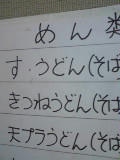 めん類
す・うどん(そば
きつねうどん(そば
天プラうどん(そば